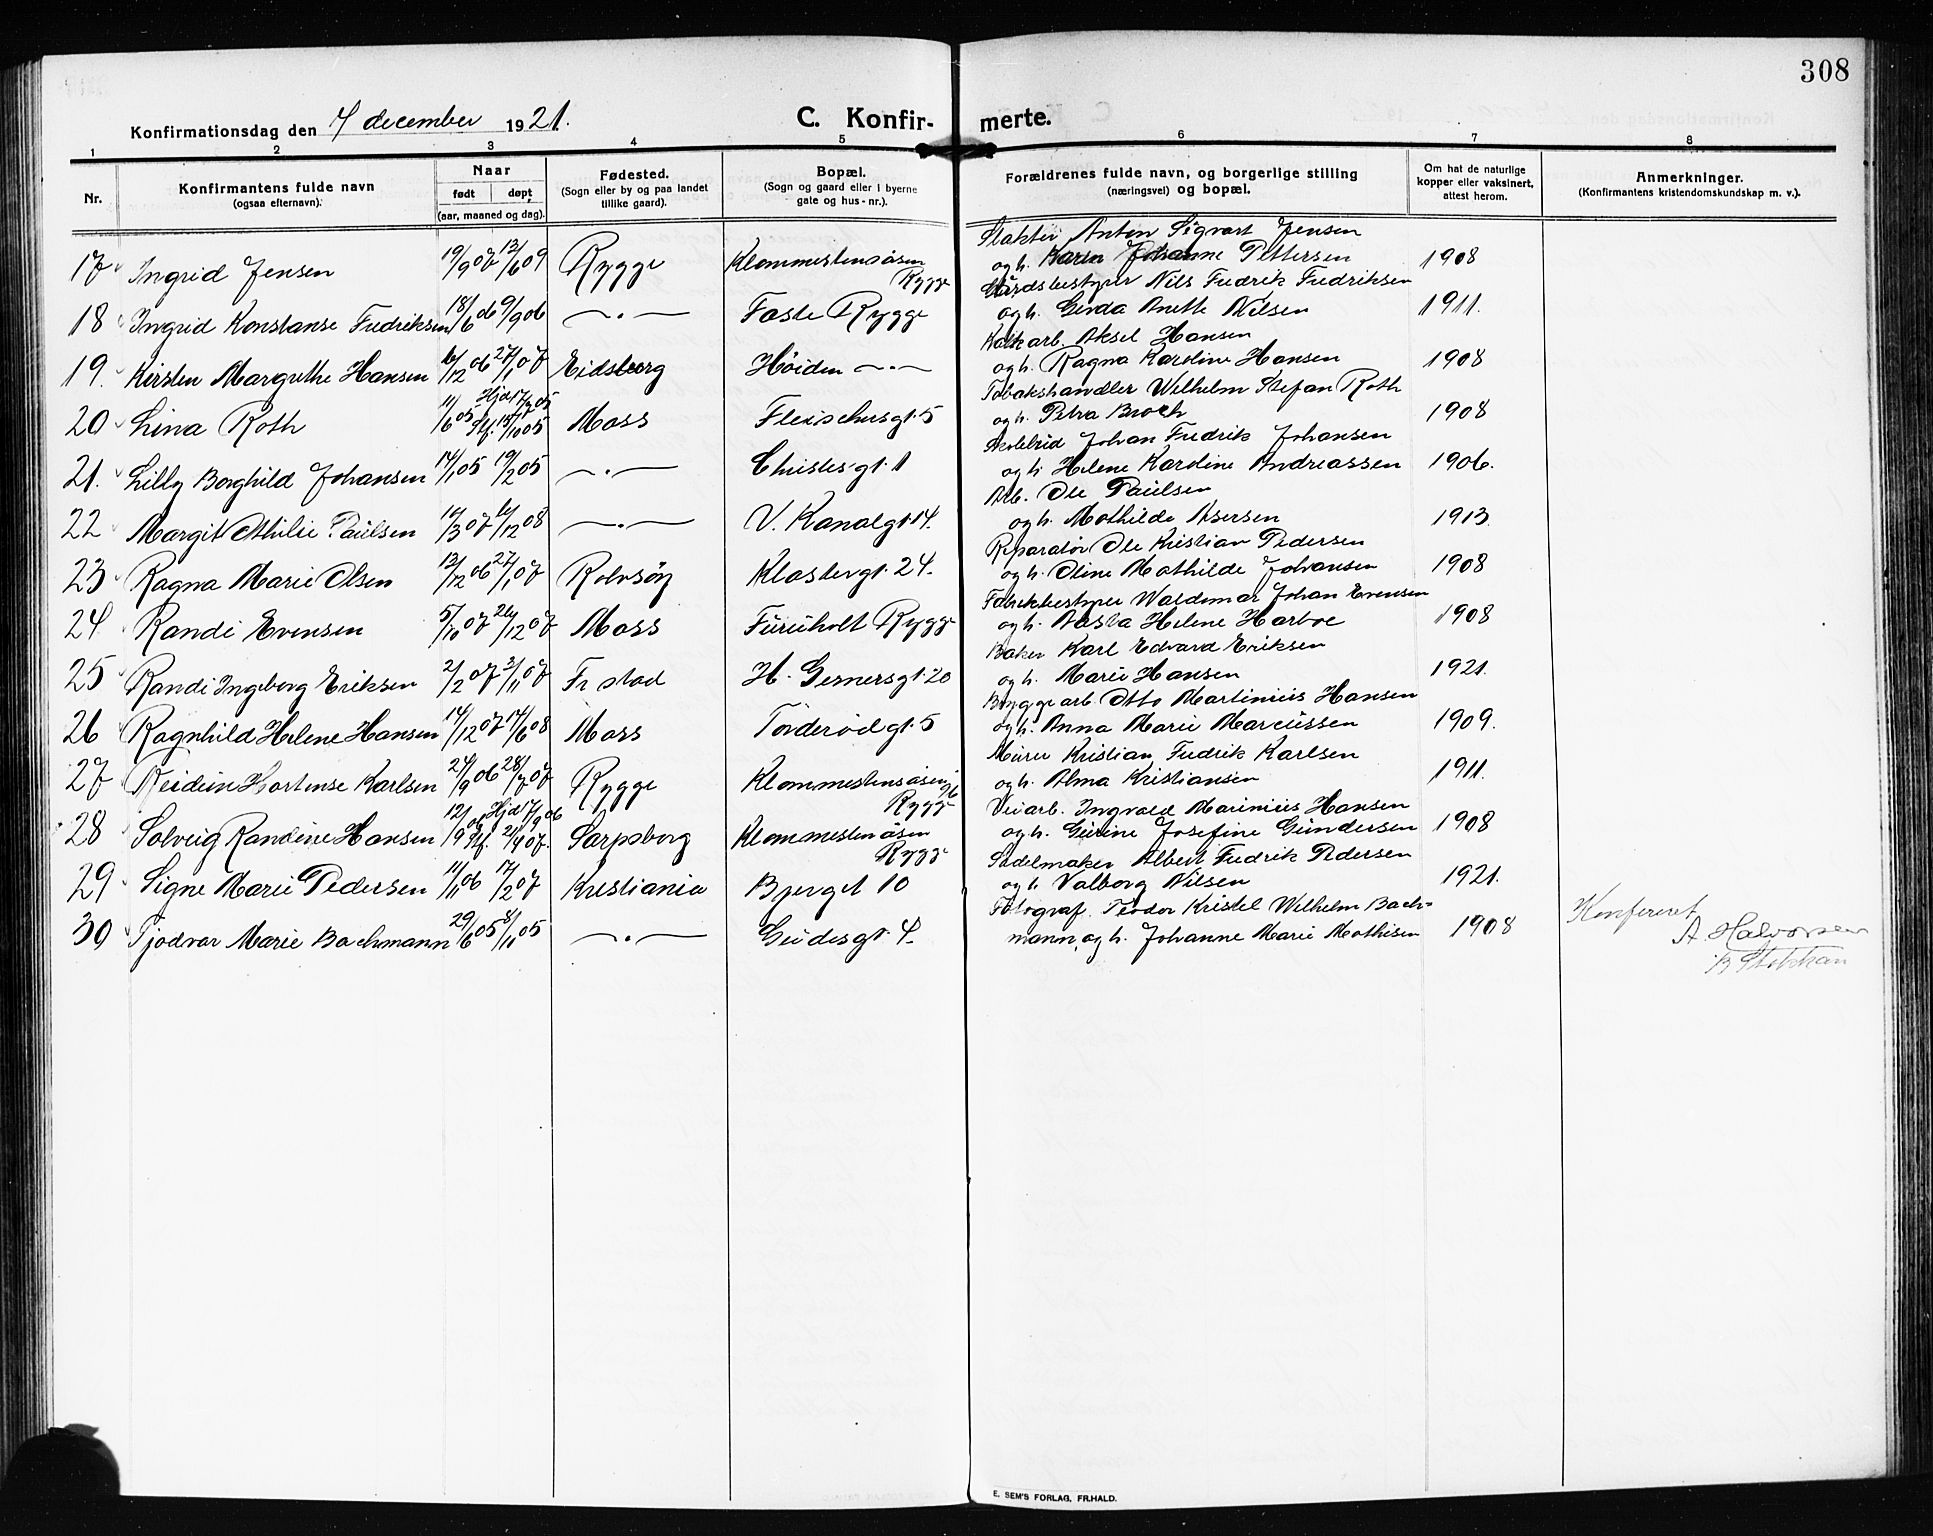 308
Konfirmationsdag den 4 december 1921.
C. Konfir-
merte.
1 2 3 4 5 6 7 8
Nr.
Konfirmantens fulde navn
(ogsaa efternavn).
Naar
født døpt
(aar, maaned og dag).
Fødested.
(Sogn eller by og paa landet
tillike gaard).
Bopæl.
(Sogn og gaard eller i byerne
gate og hus-nr.).
Forældrenes fulde navn, og borgerlige stilling
(næringsvei) og bopæl.
Om hat de naturlige
kopper eller vaksinert,
attest herom.
Anmerkninger.
(Konfirmantens kristendomskundskap m. v.).
17 Ingrid Jensen 19/9 07 13/6 09 Rygge Klommestensåsen Rygge
Slakter Anton Sigvart Jensen
og h. Karen Johanne Pettersen 1908
18 Ingrid Konstanse Fredriksen 18/6 06 9/9 06 —·— Faste Rygge
Gårdsbestyrer Nils Fredrik Fredriksen
og h. Gerda Anette Nilsen 1911.
19. Kirsten Margrethe Hansen 6/12 06 27/1 07 Eidsberg Höiden —·—
arb. Aksel Hansen
og h. Ragna Karoline Hansen 1908
20 Lina Roth 11/6 05 Hjd 17/7 05 Kf. 15/10 05 Moss Fleischersgt. 5
Tobakshandler Wilhelm Stefan Roth
og h. Petra Broch 1908
21. Lilly Borghild Johansen 14/1 05 19/2 05 —·— Christesgt. 1
Johan Fredrik Johansen
og h. Helene Karoline Andreassen 1906.
22 Margit Othilie Paulsen 10/3 07 6/12 08 —·— V. Kanalgt. 14.
Arb. Ole Paulsen
og h. Mathilde Asersen 1913.
23 Ragna Marie Olsen 13/12 06 27/1 07 Rolvsöy Klostergt. 24.
Reparatör Ole Kristian Pedersen
og h. Oline Mathilde Johansen 1908
24. Randi Evensen 5/10 07 26/12 07 Moss Furuholt Rygge
Fabrikbestyrer Waldemar Johan Evensen
og h. Aasta Helene Harboe 1908
25 Randi Ingeborg Eriksen 2/2 07 3/11 07 Fr stad H. Gernersgt. 20
Baker Karl Edvard Eriksen
og h. Marie Hansen 1921.
26 Ragnhild Helene Hansen 14/12 07 14/6 08 Moss Törderödgt. 5
Bryggearb. Otto Martinius Hansen
og h. Anna Marie Marcussen 1909.
27 Reidun Hortense Karlsen 24/9 06 28/7 07 Rygge Klommestensåsen Rygge
Murer Kristian Fredrik Karlsen
og h. Alma Kristiansen 1911.
28 Solveig Randine Hansen 12/9 06 Hjd 17/9 06 Kf. 21/9 07. Sarpsborg Klommestenåsen Rygge
Veiarb. Ingvald Marinius Hansen
og h. Gurine Josefine Gundersen 1908
29 Signe Marie Pedersen 11/11 06 17/2 07 Kristiania Bjerget 10
Sadelmaker Albert Fredrik Pedersen
og h. Valborg Nilsen 1921.
30 Tjodvar Marie Bachmann 29/6 05 8/11 05 —·— Gudesgt. 4.
Fotograf. Teodor Kristel Wilhelm Bach-
mann, og h. Johanne Marie Mathisen 1908
Konfereret
A. Halvorsen
E. SEM'S FORLAG, FR.HALD.